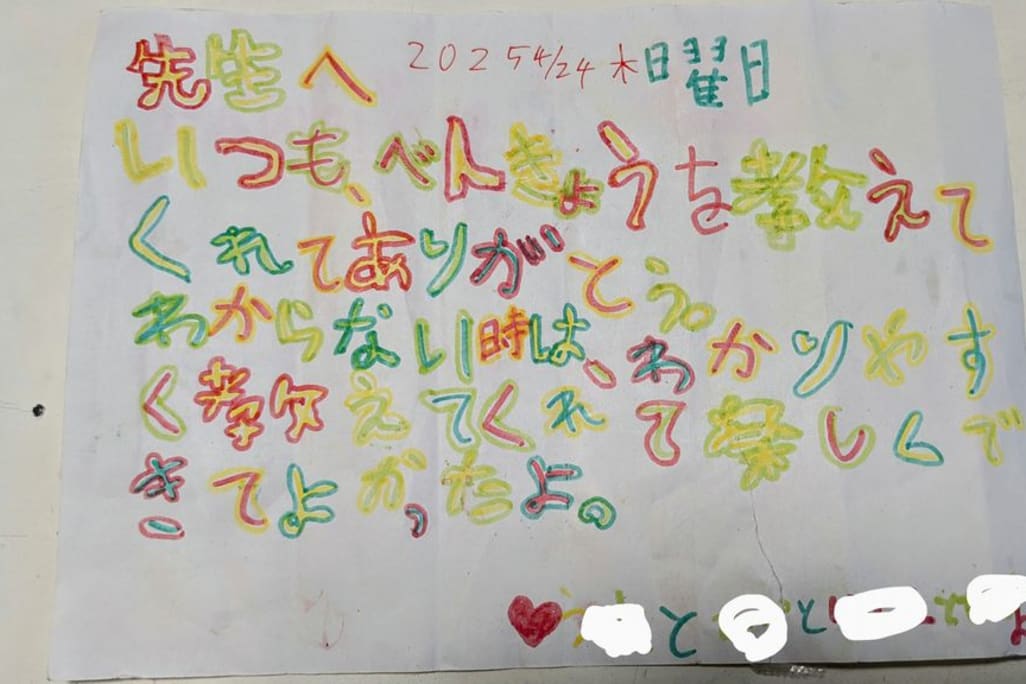 先生へ 2025 4/24 木曜日
いつも、べんきょうを教えて
くれてありがとう。
わからない時は、わかりやす
く教えてくれて楽しくで
きてよかったよ。
と と